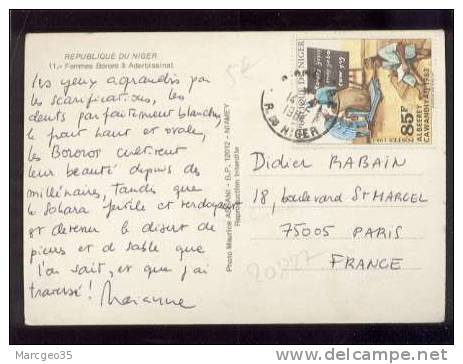 REPUBLIQUE DU NIGER
11,- Femmes Bororo à Aderbissinat
les yeux agrandis par
les scarifications, les
dents parfaitement blanches,
le front haut et ovale,
les Bororos cultivent
leur beauté depuis des
millénaires, tandis que
le Sahara fertile et verdoyant
est devenu le désert de
pierres et de sable que
l'on sait, et que j'ai
traversé! Marianne
Photo Maurice ASCANI - B.P. 12012 - NIAMEY
Reproduction Interdite
5€
NIGER
85F
Didier RABAIN
18, boulevard St MARCEL
75005 PARIS
FRANCE
Margeo35
http://www.delcampe.net